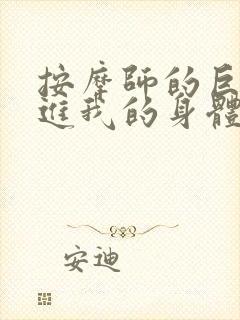 按摩師的巨
進我的身體
安迪